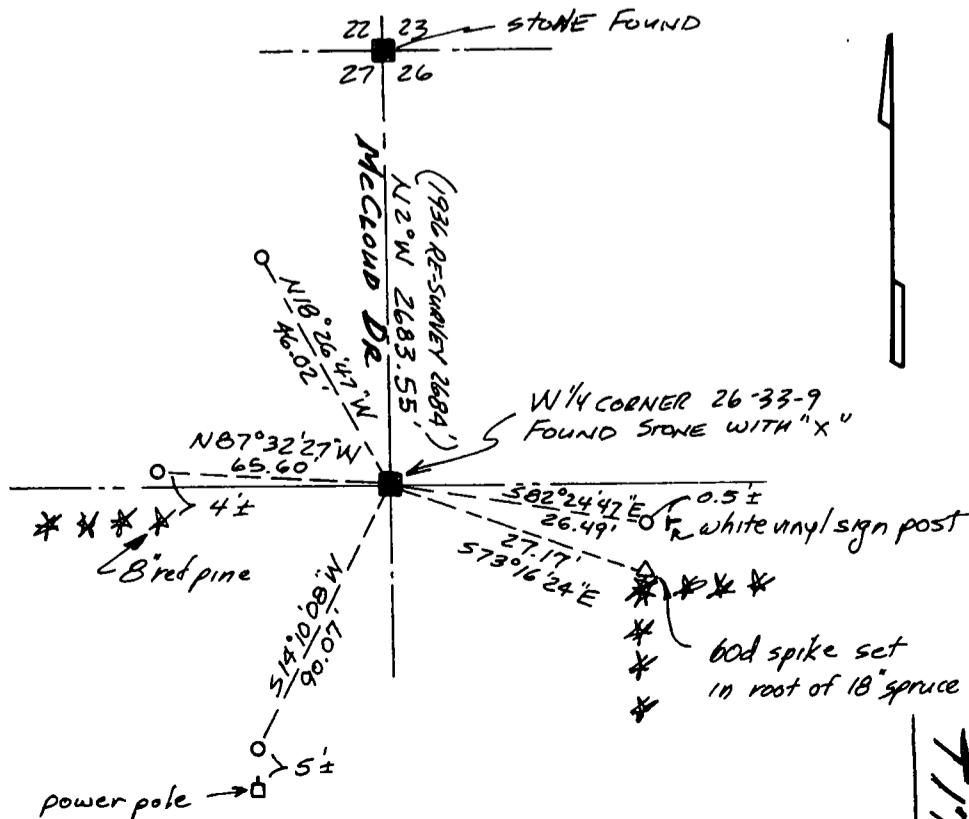 22 23
STONE FOUND
27 26
McCLOUD DR
N2°W 2683.55'
(1936 RE-SURVEY 2684')
N18°26'47"W
46.02'
W 1/4 CORNER 26-33-9
FOUND STONE WITH "X"
N87°32'27"W
65.60'
4'±
8" red pine
S82°24'47"E
26.49'
0.5'±
white vinyl sign post
27.17'
S73°16'24"E
60d spike set
in root of 18" spruce
S14°10'08"W
90.07'
5'±
power pole